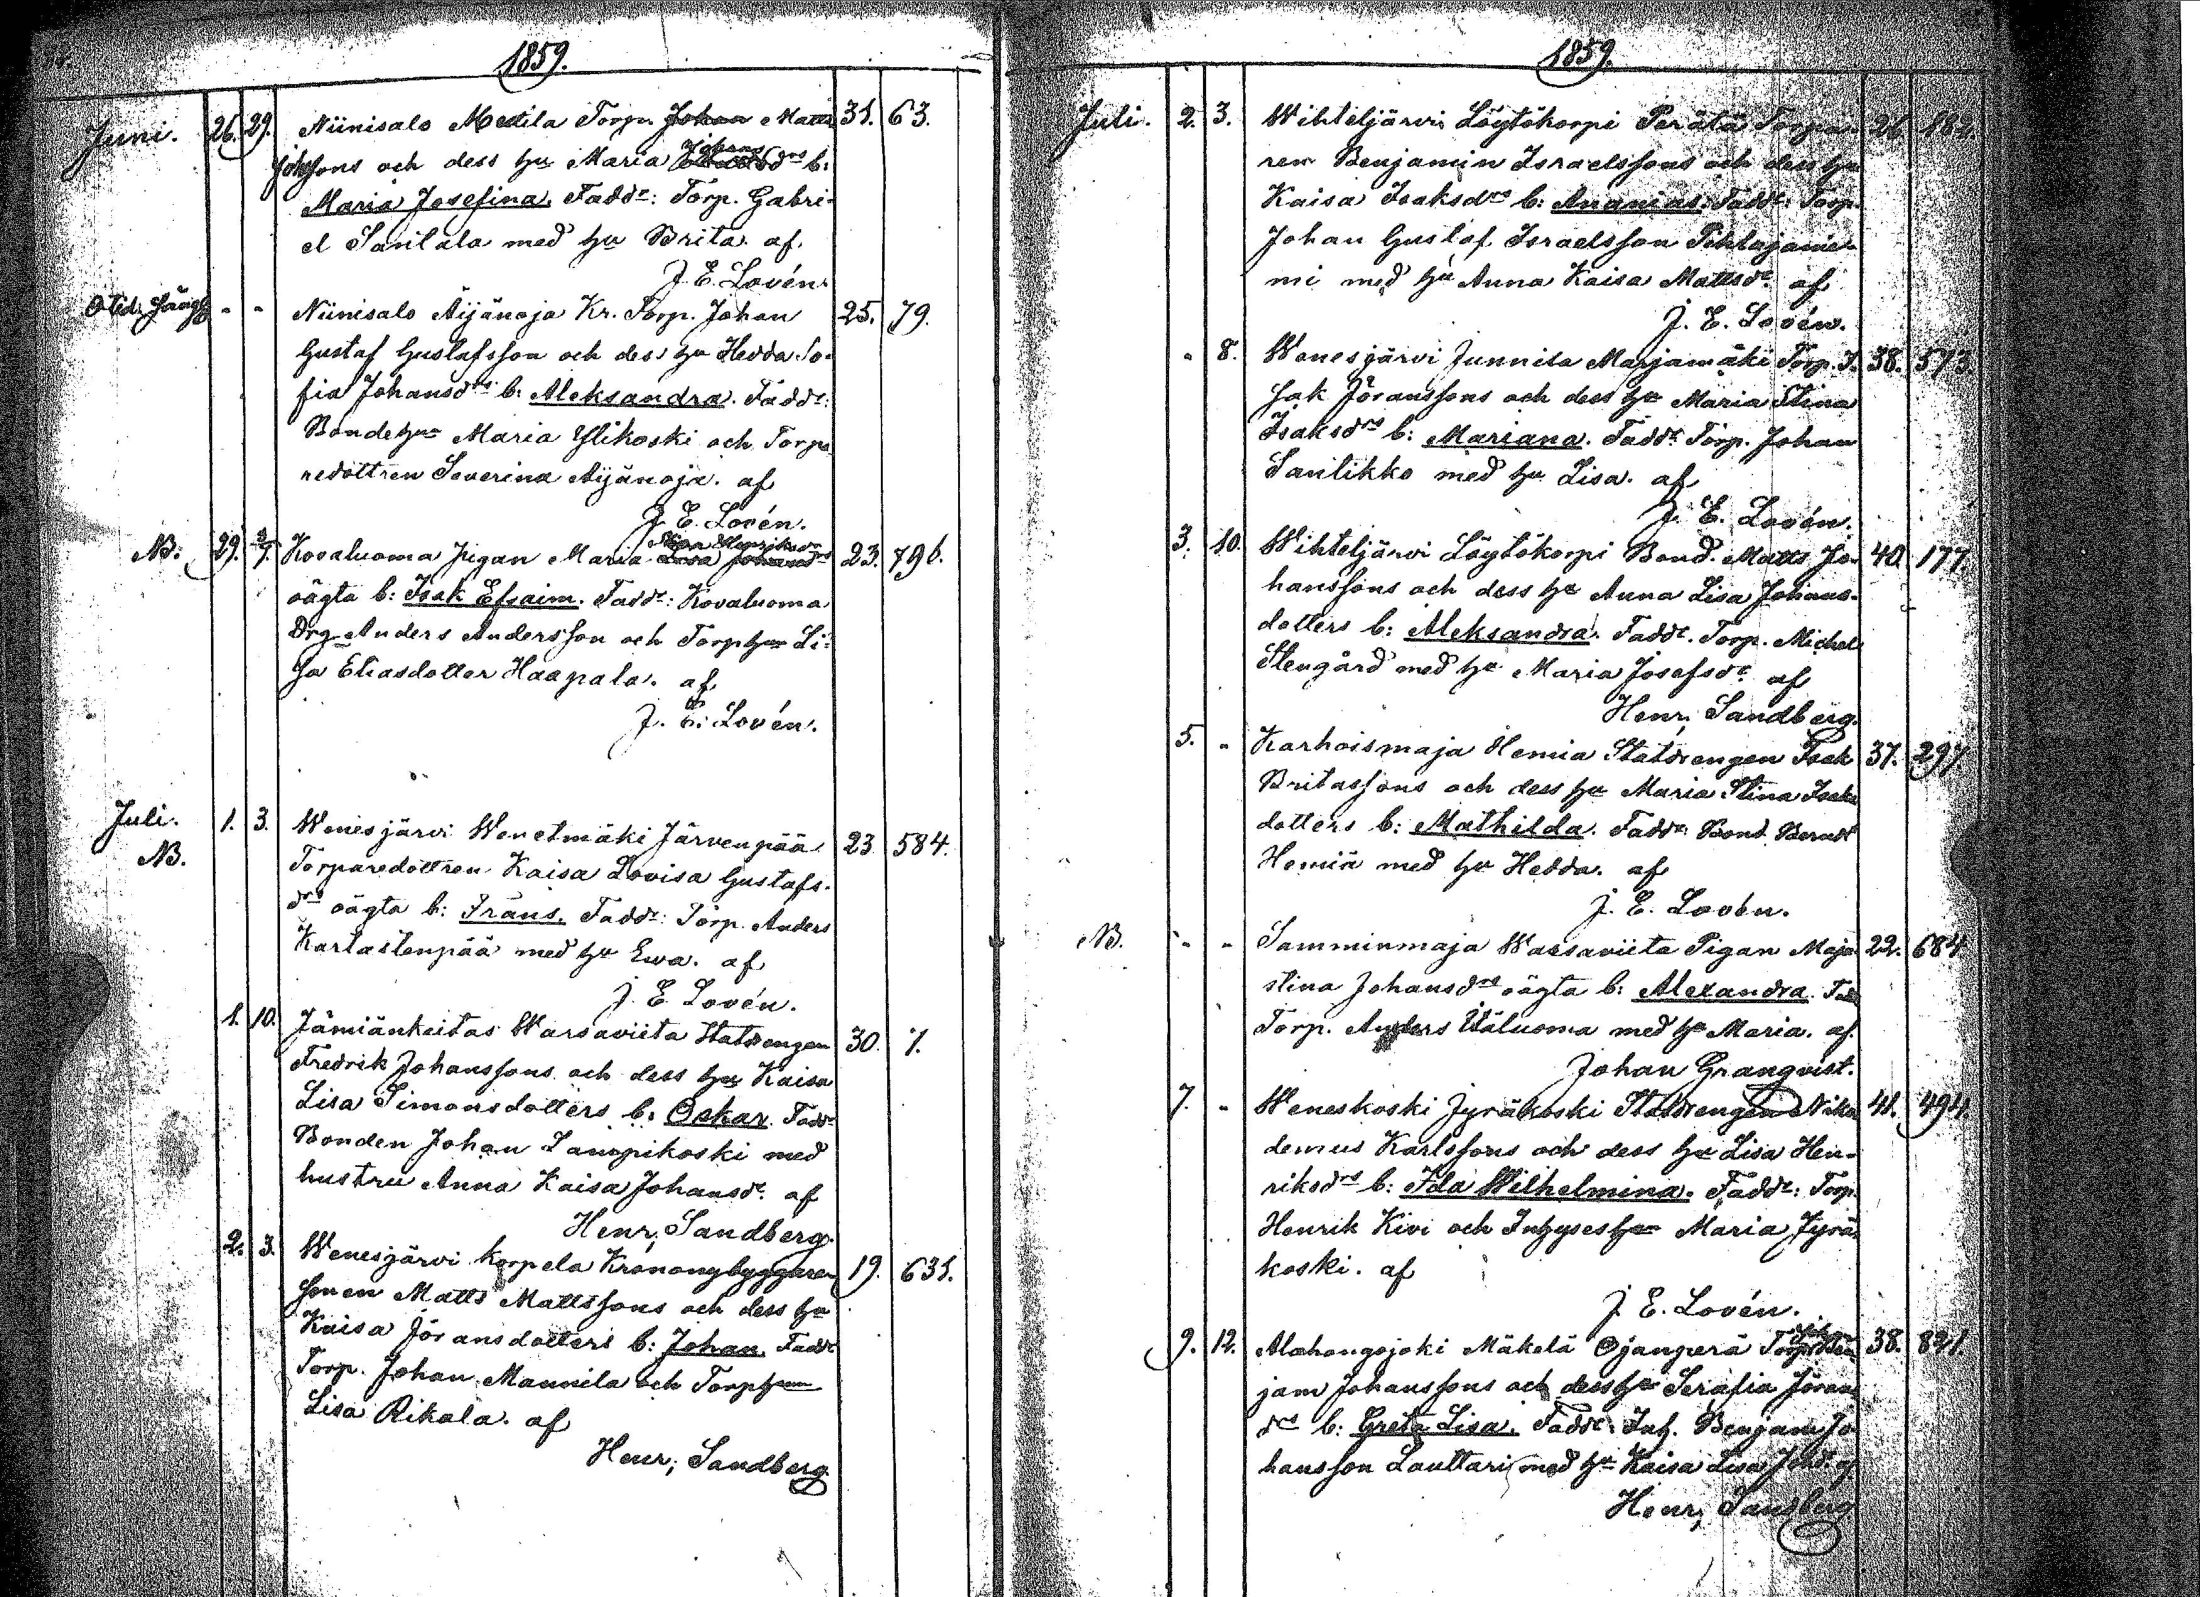 1859.
Juni. 26. 29. Niinisalo Mettila Torp. Johan Matts 31. 63.
Johssons och dess hu Maria Johans drs b:
Maria Josefina. Faddr: Torp. Gabri-
el Santala med hu Brita. af.
J. E. Lovén.
- - Niinisalo Äijänoja Kr. Torp. Johan 25. 79.
Gustaf Gustafsson och dess hu Hedda So-
fia Johansdrs b: Aleksandra. Faddr:
Bondehun Maria Ylikoski och Torpa
redottren Severina Äijänoja. af
J. E. Lovén.
NB. 29. 3/7. Kovaluoma Pigan Maria Stina Henriksdrs Lisa Johansdrs 23. 796.
oägta b: Isak Efraim. Faddr: Kovaluoma
Drg Anders Andersson och Torphun Li-
sa Eliasdotter Haapala. af
J. E. Lovén.
Juli. 1. 3. Wenesjärvi Wenetmäki Järvenpää 23 584.
NB. Torparedottren Kaisa Lovisa Gustafs-
drs oägta b: Frans. Faddr: Torp. Anders
Kartastenpää med hu Ewa. af
J. E. Lovén.
1. 10. Jämiänkeitas Warsaviita Statdrengen 30. 7.
Fredrik Johanssons och dess hu Kaisa
Lisa Simonsdotters b: Oskar. Faddr
Bonden Johan Lauspikoski med
hustru Anna Kaisa Johansdr. af
Henr; Sandberg.
2. 3. Wenesjärvi Korpela Kronanybyggaren 19. 631.
sonen Matts Mattssons och dess hu
Kaisa Jöransdotters b: Johan. Faddr
Torp. Johan Mannila och Torphun
Lisa Rikala. af
Henr; Sandberg
1859.
Juli. 2. 3. Wihteljärvi Löytökorpi Perätä Torpa- 26. 182.
ren Benjamin Israelssons och dess hu
Kaisa Isaksdrs b: Ananias. Faddr: Torp.
Johan Gustaf Israelsson Pihlajanie-
mi med hu Anna Kaisa Mattsdr. af
J. E. Lovén.
- 8. Wenesjärvi Junnila Marjamäki Torp. I- 38. 573.
sak Jöranssons och dess hu Maria Stina
Isaksdrs b: Mariana. Faddr Torp. Johan
Santikko med hu Lisa. af
J. E. Lovén.
3. 10. Wihteljärvi Löytökorpi Bond. Matts Jo- 40. 177.
hanssons och dess hu Anna Lisa Johans-
dotters b: Aleksandra. Faddr. Torp. Michel
Stengård med hu Maria Josefsdr. af
Henr; Sandberg.
5. - Karhoismaja Hemia Statdrengen Isak 37. 297.
Britassons och dess hu Maria Stina Isaks
dotters b: Mathilda. Faddr: Bond. Berndt
Hemiä med hu Hedda. af
J. E. Lovén.
NB. - - Samminmaja Warsaviita Pigan Maja 22. 684.
stina Johansdrs oägta b: Alexandra. Fadd
Torp. Anders Uäluoma med hu Maria. af.
Johan Granqvist.
7. - Weneskoski Jyräkoski Statdrengen Niko 41. 494.
demus Karlssons och dess hu Lisa Hen-
riksdrs b: Ida Wilhelmina. Faddr: Torp.
Henrik Kivi och Inhyseshun Maria Jyrä-
koski. af
J. E. Lovén.
9. 12. Alahongojoki Mäkelä Ojanperä Torp. Ben- 38. 821.
jam Johanssons och dess hu Serafia Jörans
drs b: Greta Lisa. Faddr: Inh. Benjam Jo
hansson Lauttari med hu Kaisa Lisa Johdr. af
Henr; Sandberg